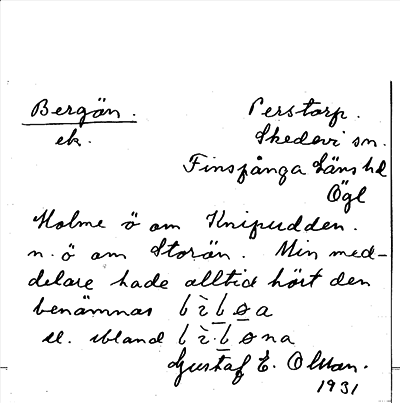 Bergön. Perstorp.
ek. Skedevi sn.
Finspånga Läns hd
Ögl
Holme ö om Knipudden.
n. ö om Storön. Min med-
delare hade alltid hört den
benämnas
el. ibland
Gustaf E. Olsson.
1931